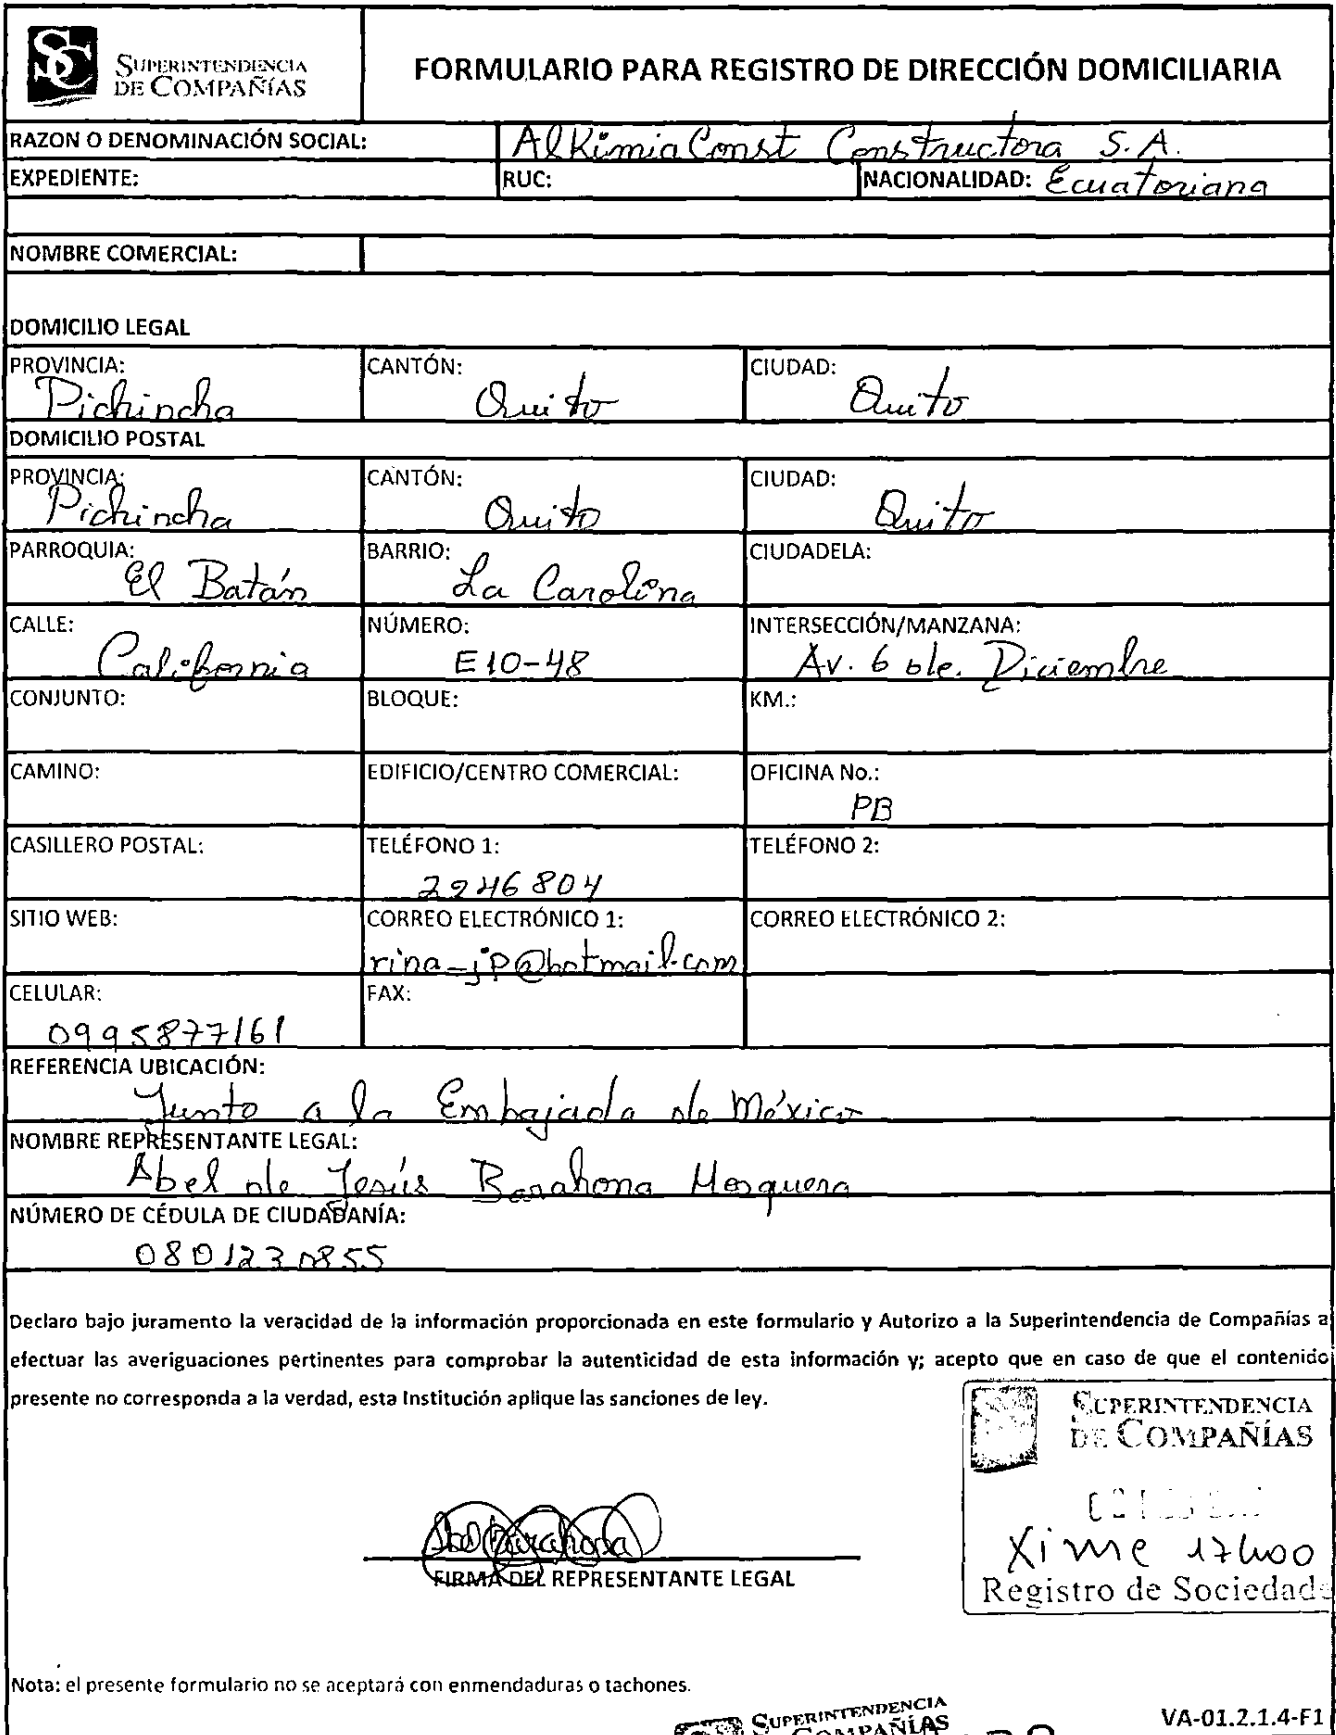 SUPERINTENDENCIA
DE COMPAÑÍAS
FORMULARIO PARA REGISTRO DE DIRECCIÓN DOMICILIARIA
RAZON O DENOMINACIÓN SOCIAL: AlkimiaConst Constructora S.A.
EXPEDIENTE: RUC: NACIONALIDAD: Ecuatoriana
NOMBRE COMERCIAL:
DOMICILIO LEGAL
PROVINCIA: CANTÓN: CIUDAD:
Pichincha Quito Quito
DOMICILIO POSTAL
PROVINCIA: CANTÓN: CIUDAD:
Pichincha Quito Quito
PARROQUIA: BARRIO: CIUDADELA:
El Batán La Carolina
CALLE: NÚMERO: INTERSECCIÓN/MANZANA:
California E10-48 Av. 6 de Diciembre
CONJUNTO: BLOQUE: KM.:
CAMINO: EDIFICIO/CENTRO COMERCIAL: OFICINA No.:
PB
CASILLERO POSTAL: TELÉFONO 1: TELÉFONO 2:
2246804
SITIO WEB: CORREO ELECTRÓNICO 1: CORREO ELECTRÓNICO 2:
rina_jp@hotmail.com
CELULAR: FAX:
0995877161
REFERENCIA UBICACIÓN:
Junto a la Embajada de México
NOMBRE REPRESENTANTE LEGAL:
Abel de Jesús Barahona Mosquera
NÚMERO DE CÉDULA DE CIUDADANÍA:
0801230855
Declaro bajo juramento la veracidad de la información proporcionada en este formulario y Autorizo a la Superintendencia de Compañías a
efectuar las averiguaciones pertinentes para comprobar la autenticidad de esta información y; acepto que en caso de que el contenido
presente no corresponda a la verdad, esta Institución aplique las sanciones de ley.
SUPERINTENDENCIA
DE COMPAÑÍAS
Xime 17h00
Registro de Sociedad
Abel Barahona
FIRMA DEL REPRESENTANTE LEGAL
Nota: el presente formulario no se aceptará con enmendaduras o tachones.
SUPERINTENDENCIA
COMPAÑÍAS
VA-01.2.1.4-F1